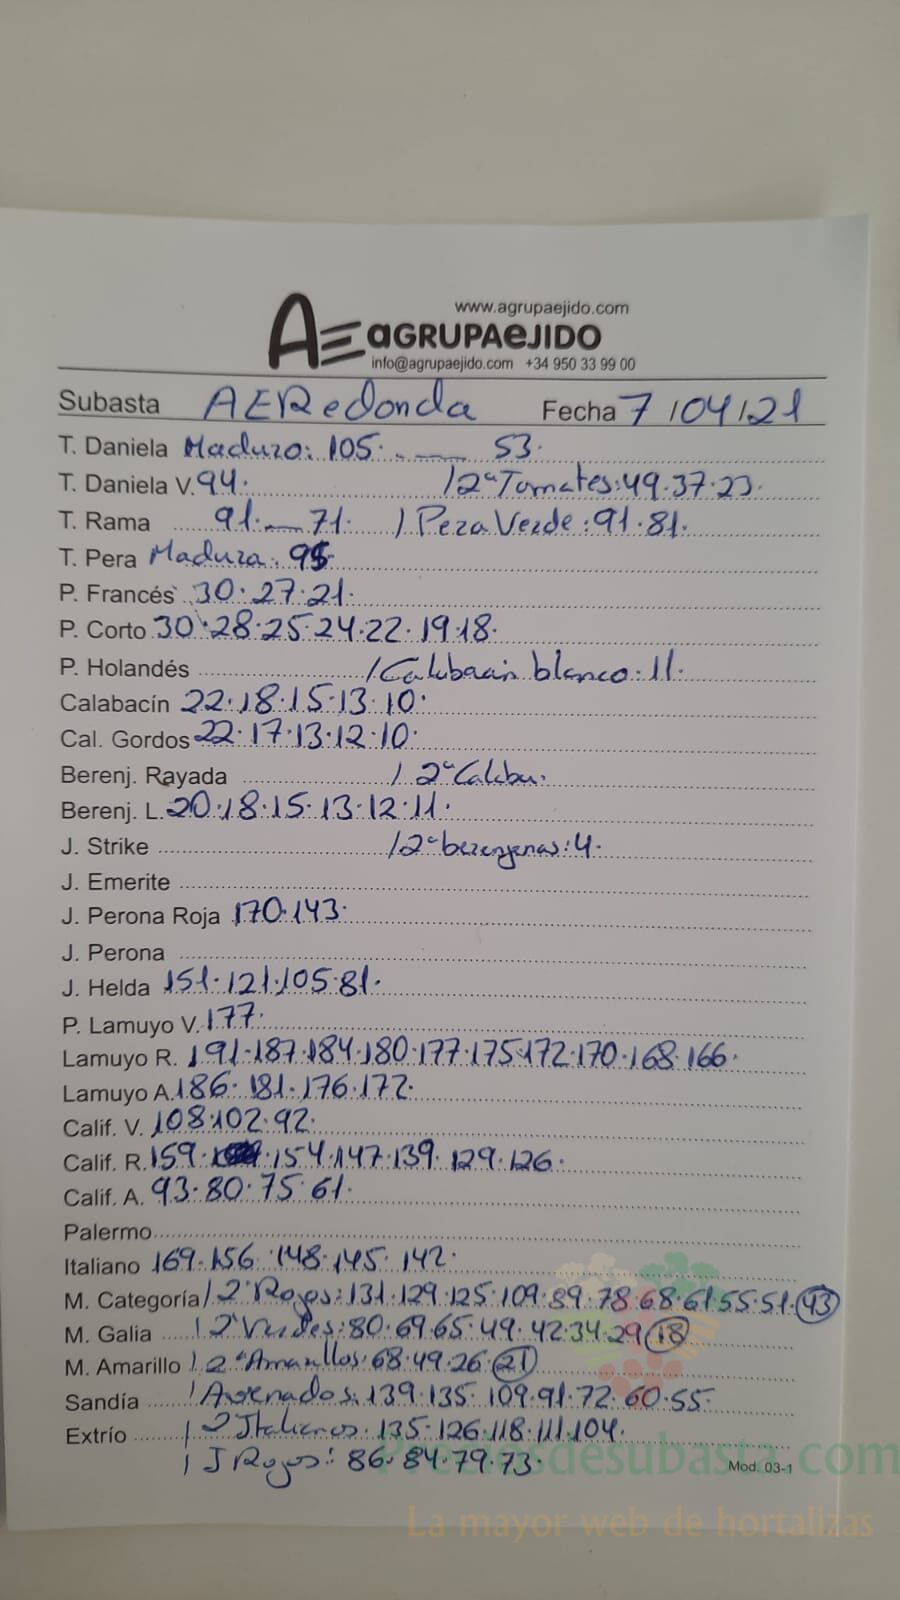 www.agrupaejido.com
AE aGRUPAeJIDO
info@agrupaejido.com +34 950 33 99 00
Subasta AERedonda Fecha 7/04/21
T. Daniela Maduro: 105. — 53.
T. Daniela V. 94. /2ª Tomates: 49.37.23.
T. Rama 91. — 71. / Pera Verde: 91.81.
T. Pera Madura: 95
P. Francés 30.27.21.
P. Corto 30.28.25.24.22.19.18.
P. Holandés /Calabacin blanco: 11.
Calabacín 22.18.15.13.10.
Cal. Gordos 22.17.13.12.10.
Berenj. Rayada / 2ª Calaba.
Berenj. L. 20.18.15.13.12.11.
J. Strike /2ª berenjenas: 4.
J. Emerite
J. Perona Roja 170.143.
J. Perona
J. Helda 151.121.105.81.
P. Lamuyo V. 177.
Lamuyo R. 191.187.184.180.177.175.172.170.168.166.
Lamuyo A. 186.181.176.172.
Calif. V. 108.102.92.
Calif. R. 159.154.147.139.129.126.
Calif. A. 93.80.75.61.
Palermo
Italiano 169.156.148.145.142.
M. Categoría / 2ª Rojos: 131.129.125.109.89.78.68.61.55.51.43
M. Galia / 2ª Verdes: 80.69.65.49.42.34.29.18
M. Amarillo / 2ª Amarillos: 68.49.26.21
Sandía / Asurados: 139.135.109.91.72.60.55.
Extrío / 2 Italianos: 135.126.118.111.104.
/ J Rojos: 86.84.79.73.
Mod. 03-1
Preciosdesubasta.com
La mayor web de hortalizas